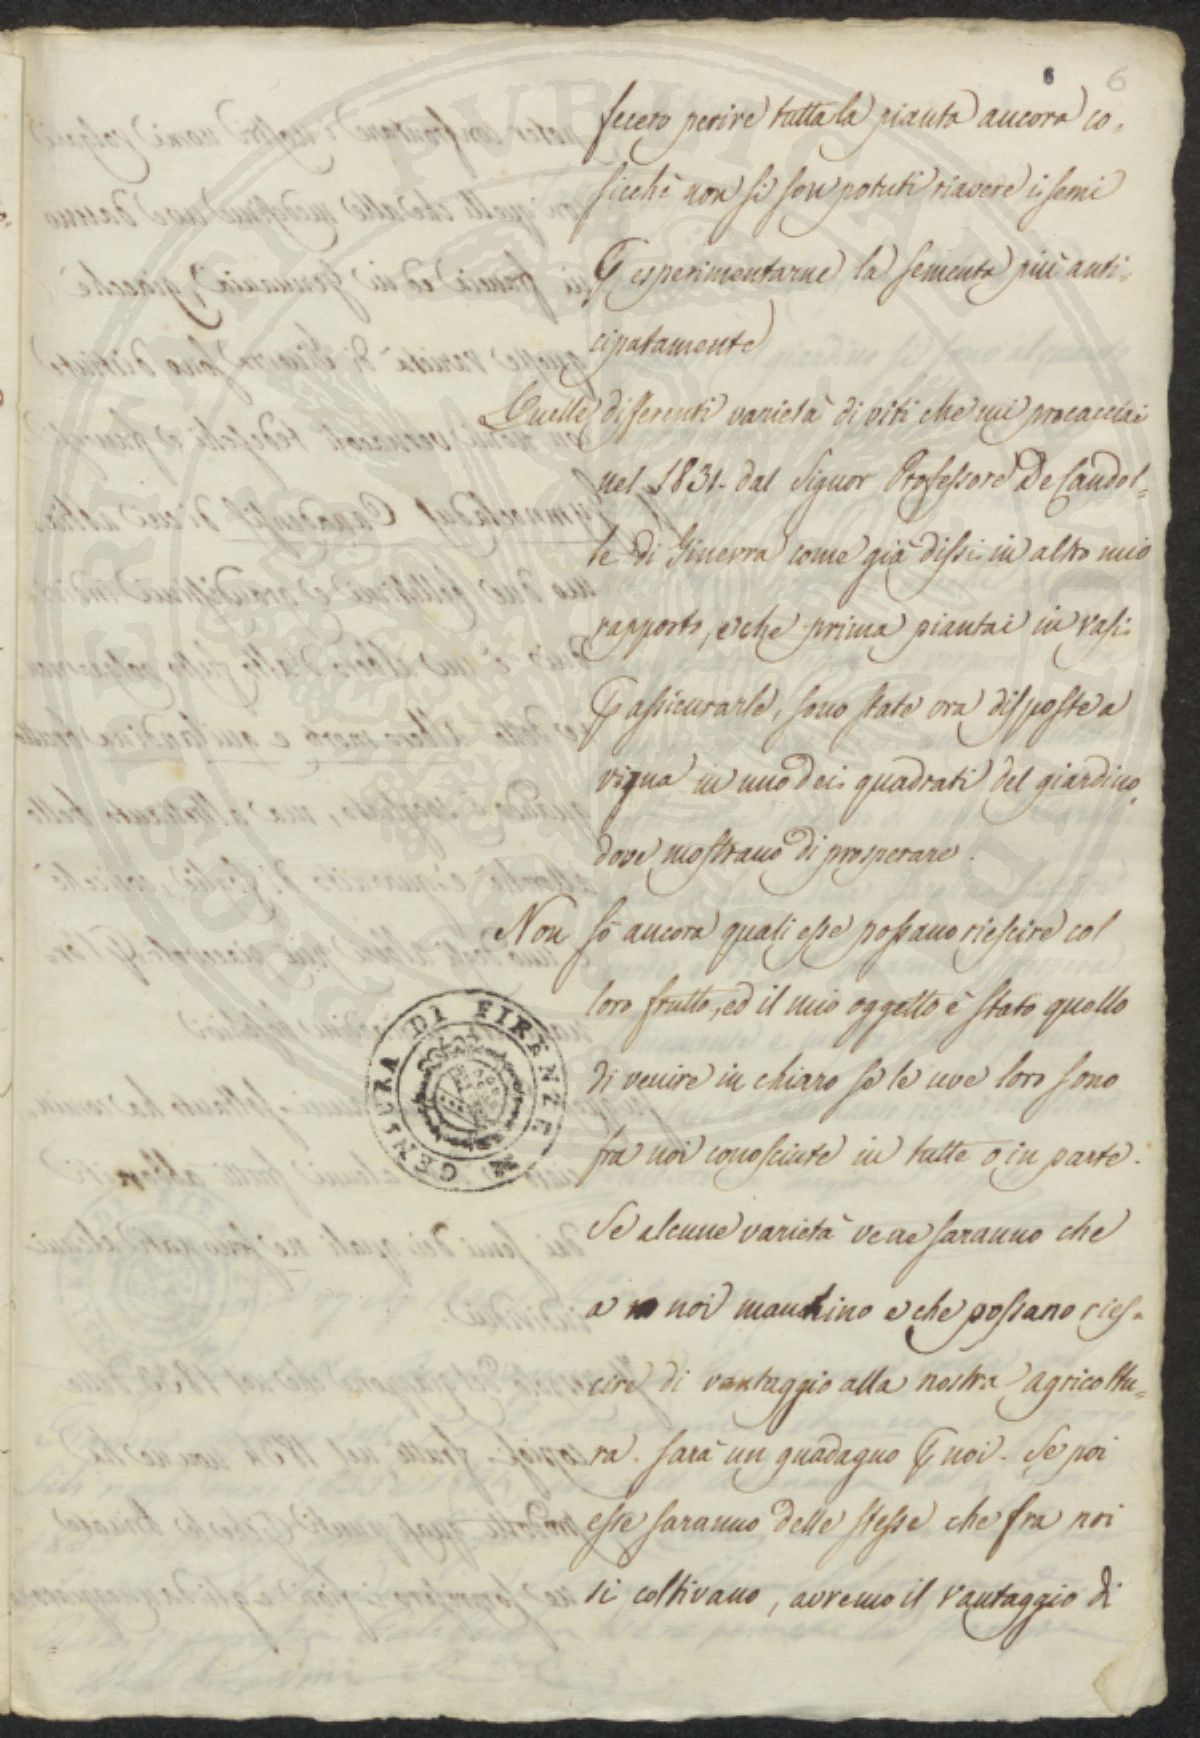 6 6
fecero perire tutta la pianta ancora co-
sicchè non si son potuti riavere i semi
P esperimentarne la sementa più anti-
cipatamente
Quelle differenti varietà di viti che mi procacciai
nel 1831 dal Signor Professore De Candol-
le di Ginevra come già dissi in altro mio
rapporto, e che prima piantai in vasi
P assicurarle, sono state ora disposte a
vigna in uno dei quadrati del giardino,
dove mostrano di prosperare.
Non sò ancora quali esse possano riescire col
loro frutto, ed il mio oggetto è stato quello
di venire in chiaro se le uve loro sono
fra noi conosciute in tutte o in parte.
Se alcune varietà ve ne saranno che
a noi manchino e che possano ries-
cire di vantaggio alla nostra agricoltu-
ra. sarà un guadagno P noi. Se poi
esse saranno delle stesse che fra noi
si coltivano, avremo il vantaggio di
CENSURA DI FIRENZE